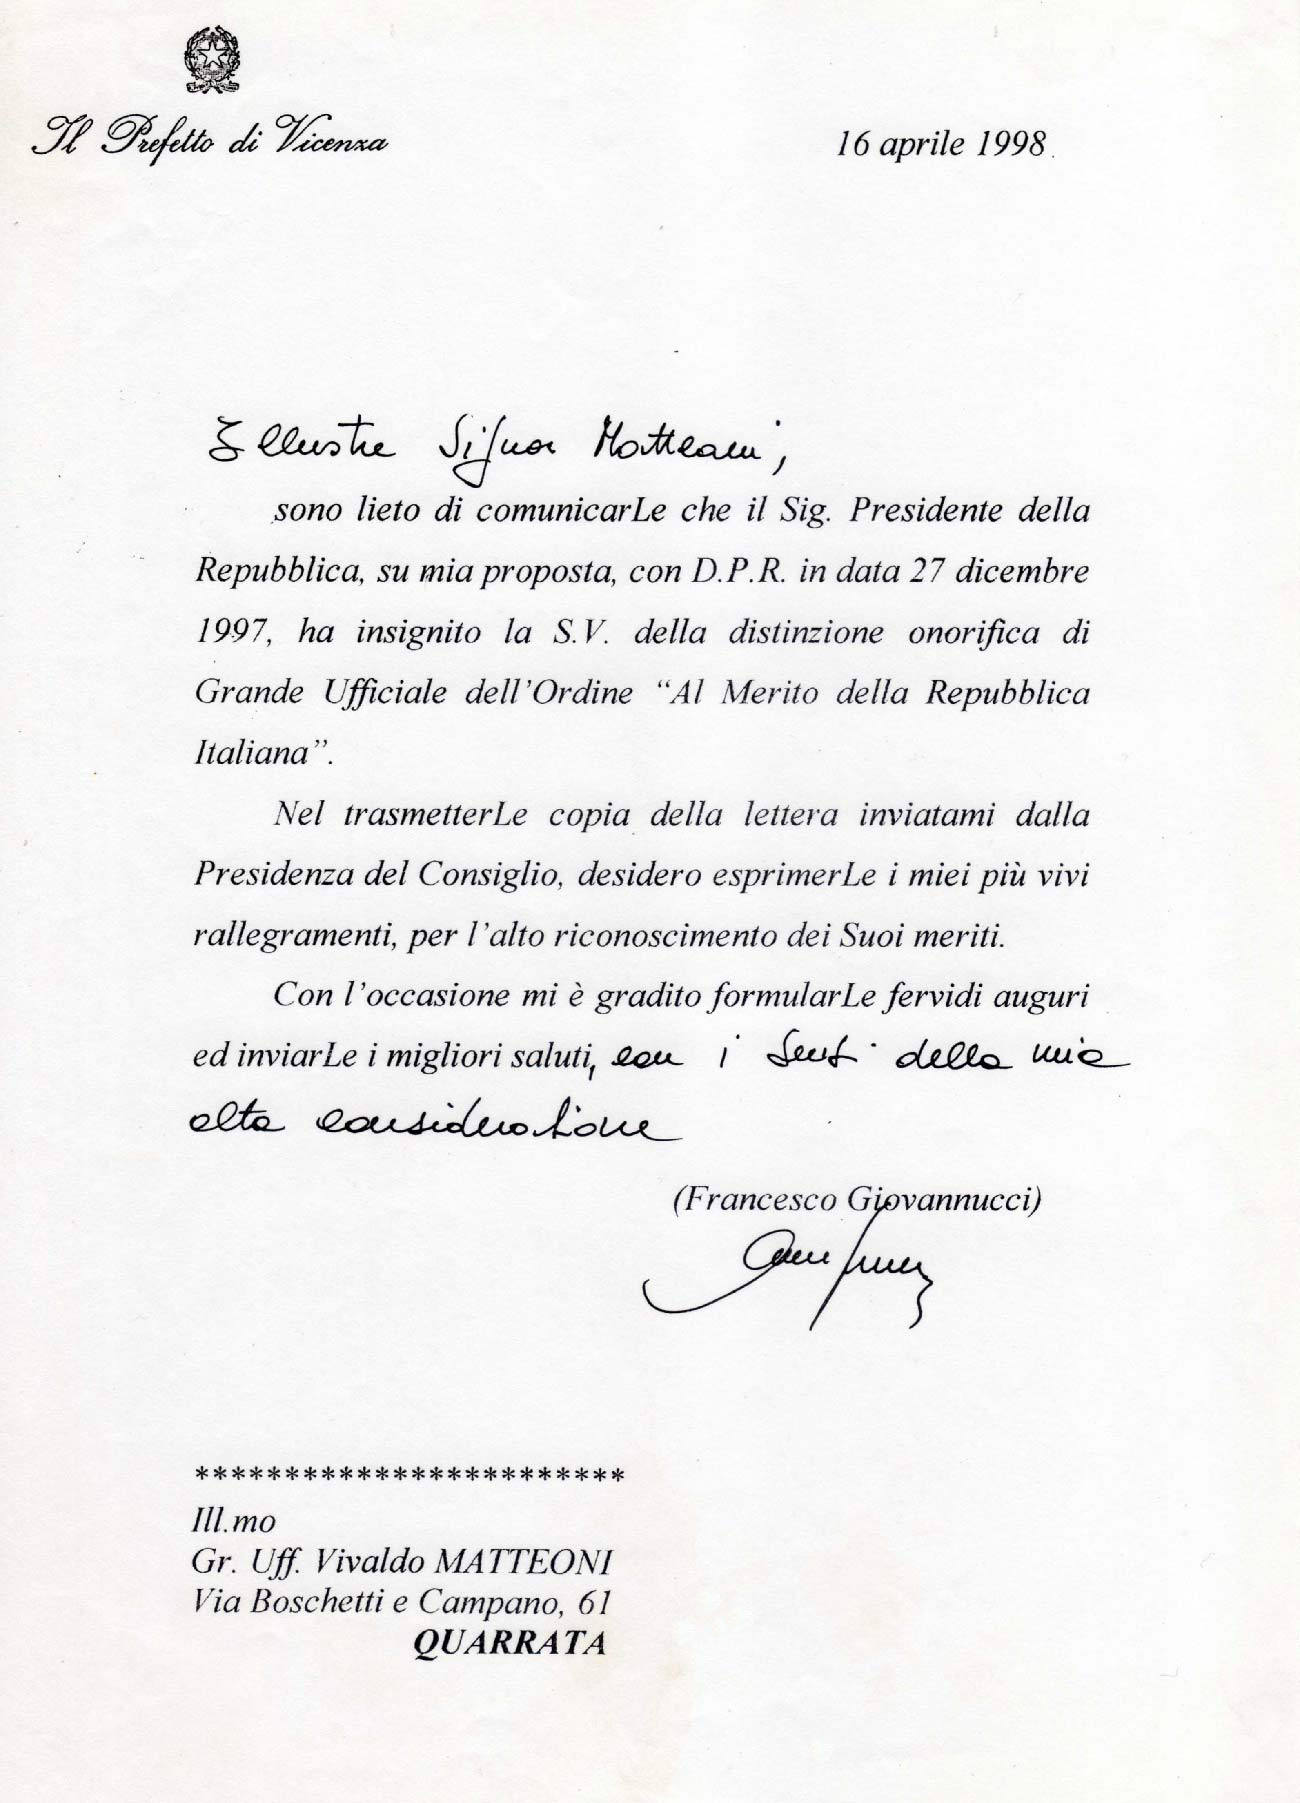 Il Prefetto di Vicenza
16 aprile 1998
Illustre Signor Matteoni,
sono lieto di comunicarLe che il Sig. Presidente della
Repubblica, su mia proposta, con D.P.R. in data 27 dicembre
1997, ha insignito la S.V. della distinzione onorifica di
Grande Ufficiale dell'Ordine “Al Merito della Repubblica
Italiana”.
Nel trasmetterLe copia della lettera inviatami dalla
Presidenza del Consiglio, desidero esprimerLe i miei più vivi
rallegramenti, per l'alto riconoscimento dei Suoi meriti.
Con l'occasione mi è gradito formularLe fervidi auguri
ed inviarLe i migliori saluti, con i sensi della mia
alta considerazione
(Francesco Giovannucci)
************************
Ill.mo
Gr. Uff. Vivaldo MATTEONI
Via Boschetti e Campano, 61
QUARRATA